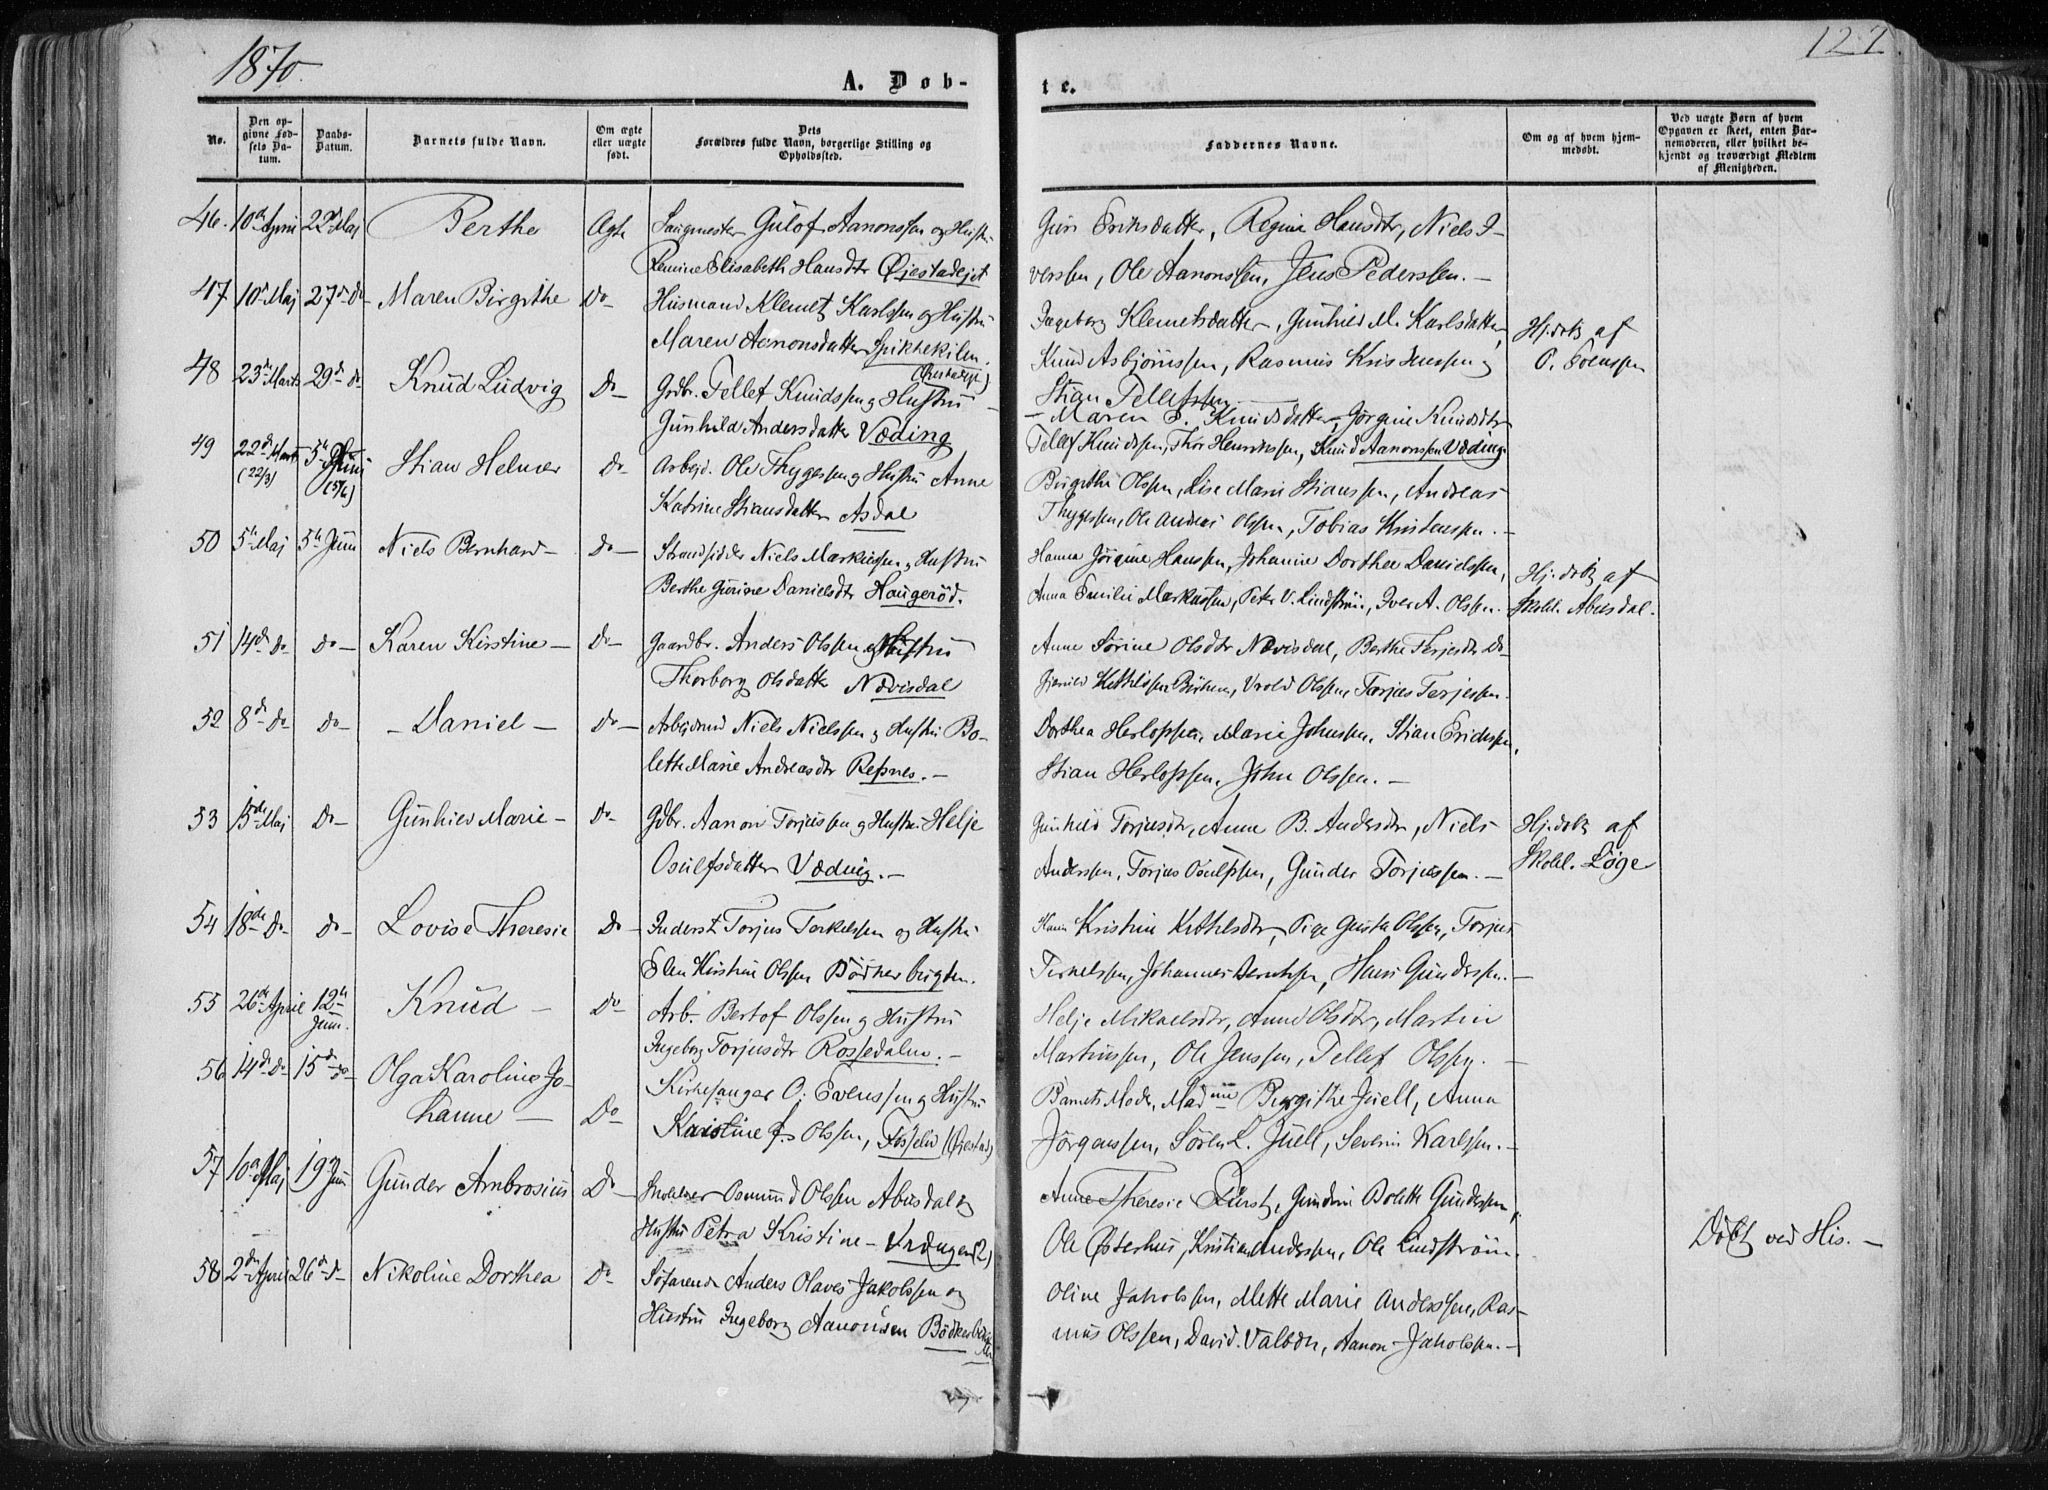 1870.
127
A. Døb-
te.
No.
Den op-
givne Fød-
sels Da-
tum.
Daabs-
Datum.
Barnets fulde Navn.
Om ægte
eller uægte
født.
Dets
Forældres fulde Navn, borgerlige Stilling og
Opholdssted.
Faddernes Navne.
Om og af hvem hjem-
medøbt.
Ved uægte Børn af hvem
Opgaven er skeet, enten Bar-
nemoderen, eller hvilket be-
kjendt og troværdigt Medlem
af Menigheden.
46. 10de April 22de Maj Berthe Ægte Saugmester Gulof Aanonssen og Hustru
Elisabeth Hansdtr Øjestadejet
Guri Eriksdatter, Regine Hansdtr, Niels I-
verssen, Ole Aanonssen, Jens Pederssen. —
47 10de Maj 27de Do Maren Birgithe Do — Husmand Klemet Karlssen og Hustru
Maren Aanonsdatter Spikkekilen.
(Øiestadejet)
Ingeborg Klemetsdatter, Gunhild M. Karlsdatter,
Knud Asbjørnssen, Rasmus Kristenssen og
Stian Tellefssen
Hj.døbt af
O. Evenssen
48 23de Marts 29de do Knud Ludvig Do — Grdbr. Tellef Knudssen og Hustru —
Gunhild Andersdatter Væding
— Maren T. Knudsdatter, Jørgine Knudsdtr
Tellef Knudssen, Thor Henrikssen, Knud Aanonssen Væding.
49 22de Marts (22/3) 5te Juni (5/6) Stian Helmer Do — Arbejd. Ole Thygessen og Hustru Anne
Katrine Stiansdatter Asdal
Birgithe Olssen, Lise Marie Stianssen, Andreas
Thygessen, Ole Andreas Olssen, Tobias Kristenssen. —
50 5te Maj 5te Juni Niels Bernhard — Do — Strandsidder Niels Markussen og Hustru
Berthe Gurine Danielsdtr Haugerød.
Hanna Jørgine Hanssen, Johanne Dorthea Danielssen,
Anna Emilie Markussen, Peter V. Lindstrøm, Iver A. Olssen.
Hj.døbt af
Skolel. Abusdal.
51 14de Do Do — Karen Kirstine — Do — Gaardbr. Anders Olssen og Hustru
Thorborg Olsdatter Nævisdal
Anne Sørine Olsdtr Nævisdal, Berthe Terjesdtr Do —
Vrold Olssen, Tarjus Terjessen.
52 8de Do Do — — Daniel — Do — Arbejdsmd Niels Nielssen og Hustru Bo-
lette Marie Andreasdtr Refsnes. —
Dorthea Herlofssen, Marie Johnssen, Stian Erickssen,
Stian Herlofssen, John Olssen. —
53 15de Maj Do — Gunhild Marie — Do — Gdbr. Aanon Torjussen og Hustru Helje
Osulfsdatter Væding. —
Gunhild Torjusdtr, Anne B. Andersdtr, Niels
Anderssen, Torjus Osulfssen, Gunder Torjussen. —
Hj.døbt af
Skolel. Løge
54 18de Do Do — Lovise Theresie Do — Inderst Torjus Terkelssen og Hustru
Elen Kirstine Olssen Bødkerbugten.
Kristine Kittelsdtr, Pige Gusta Olssen, Torjus
Terkelssen, Johannes Berntssen, Hans Gunderssen. —
55 26de April 12te Juni. Knud — Do — Arb. Bertof Olssen og Hustru
Ingeborg Torjusdtr Rossedalen. —
Helje Mikaelsdtr, Anne Olsdtr, Martin
Martinssen, Ole Jenssen, Tellef Olssen. —
56 14de Do 15de do Olga Karoline Jo-
hanne — Do — Kirkesanger O. Evenssen og Hustru
Kristine J. Olssen, Fosselid (Øiestad)
Barnets Moder, Madme Birgithe Juell, Anna
Jørgenssen, Søren L. Juell, Severin Karlssen. —
57 10de Maj 19de Juni Gunder Ambrosius Do — Skolelærer Osmund Olssen Abusdal og
Hustru Petra Kristine — Vrængen (?)
Anne Theresie Fürst, Gundine Bolette Gunderssen,
Ole Østerhus, Kristian Anderssen, Ole Lindstrøm.
Døbt ved His. —
58 2de April 26de do Nikoline Dorthea Do — Søfarende Anders Olaves Jakobssen og
Hustru Ingeborg Aanonssen Bødkerbugten
Oline Jakobssen, Mette Marie Anderssen, Ras-
mus Olssen, David Valbdr, Aanon Jakobssen. —